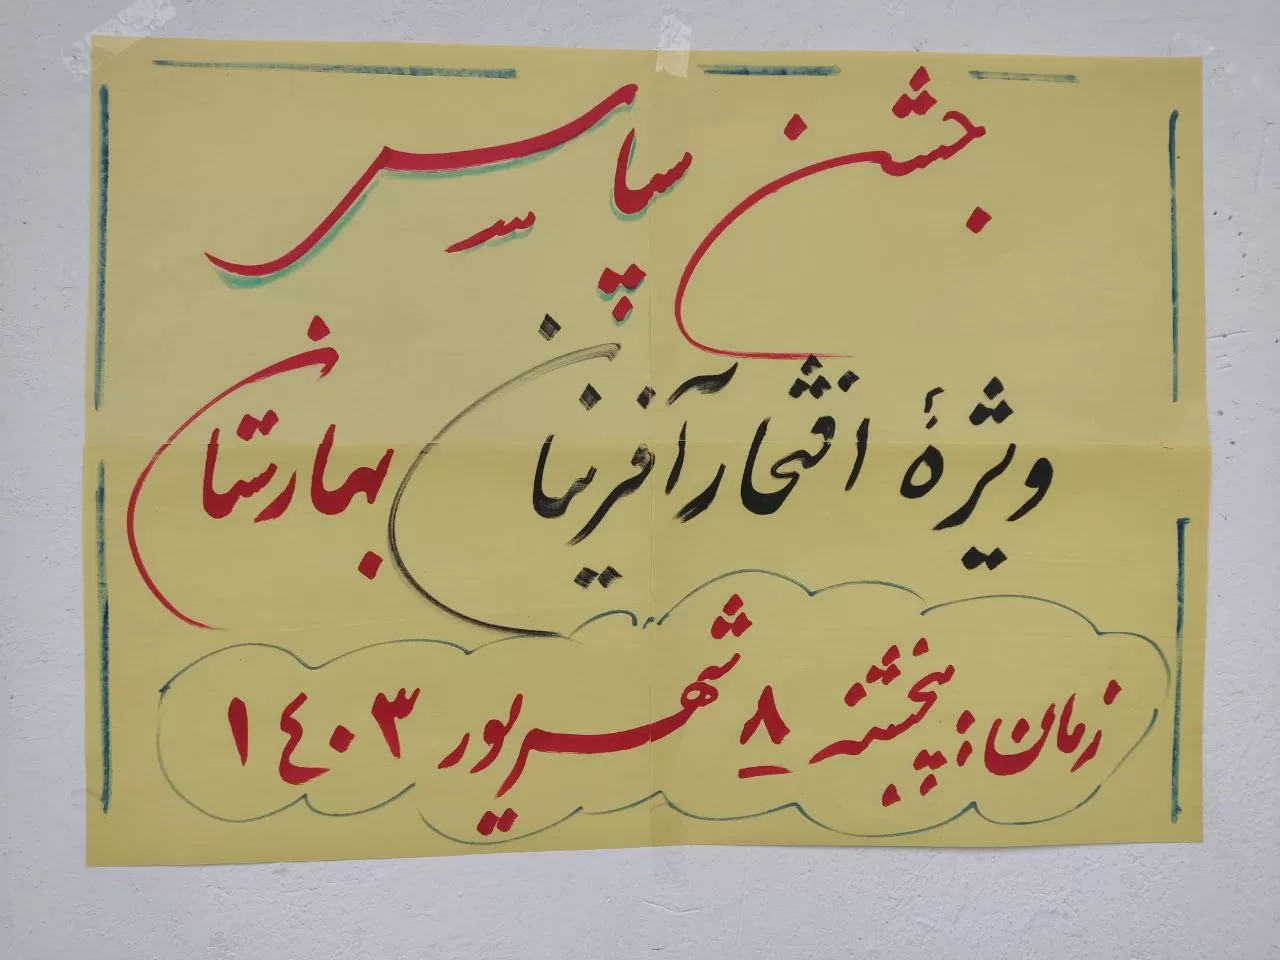 جشن سپاس
ویژهٔ افتخارآفرینان بهارستان
زمان: پنجشنبه ۸ شهریور ۱۴۰۳